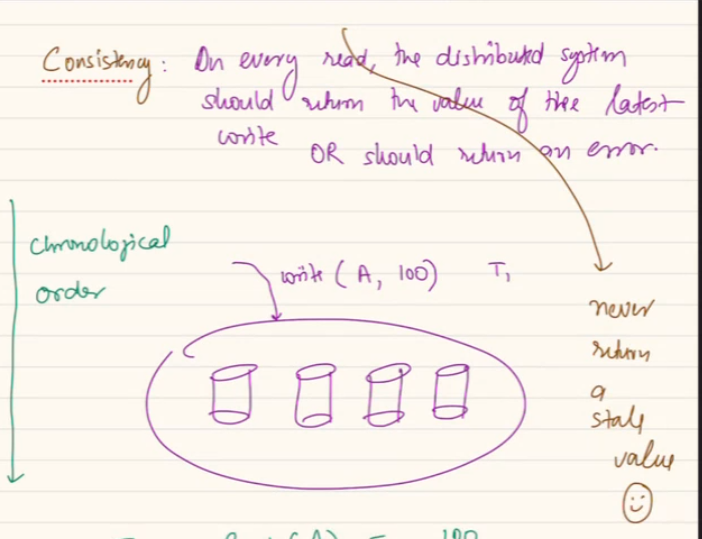 Consistency: On every read, the distributed system
should return the value of the latest
write
OR should return an error.
chronological
order
write (A, 100) T1
never
return
a
stale
value
100